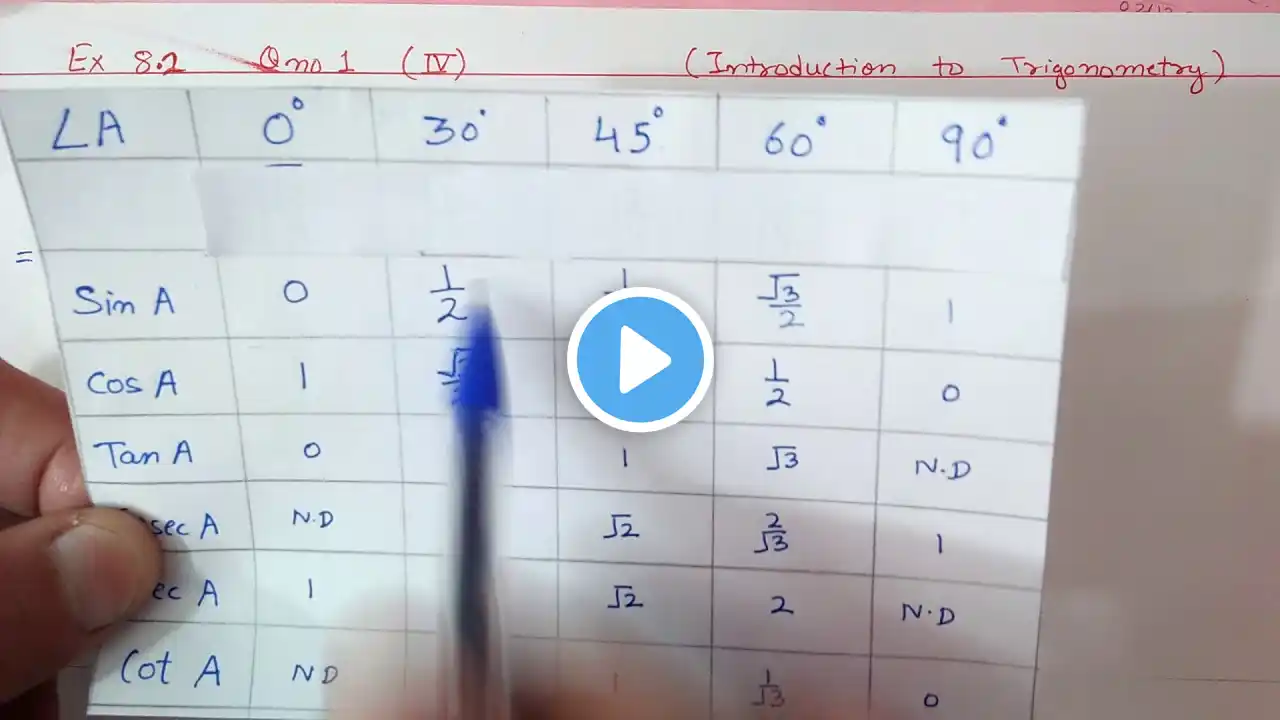 Ex 8.2 Qno 1 (IV) (Introduction to Trigonometry)
∠A 0° 30° 45° 60° 90°
=
Sin A 0 1/2 1 √3/2 1
Cos A 1 1/2 0
Tan A 0 1 √3 N.D
sec A N.D √2 2/√3 1
ec A 1 √2 2 N.D
Cot A ND 1 1/√3 0